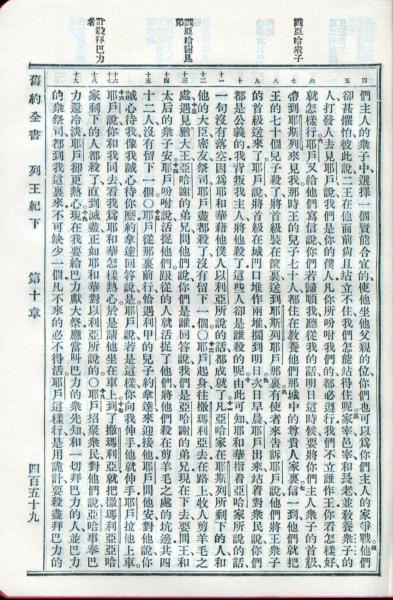 戮亞哈衆子
戮亞哈謝兄弟
計戮拜巴力者
們主人的衆子中選擇一個賢能合宜的使他坐他父親的位你們也可以爲你們主人的家爭戰他們
卻甚懼怕彼此說二王在他面前尚且站立不住我們怎能站得住呢家宰邑宰和長老並教養衆子的
人打發人去見耶戶說我們是你的僕人凡你所吩咐我們的都必遵行我們不立誰作王你看怎樣好
就怎樣行耶戶又給他們寫信說你們若歸順我聽從我的話明日這時候要將你們主人衆子的首級
帶到耶斯列來見我那時王的兒子七十人都住在教養他們那城中的尊貴人家裏信一到他們就把
王的七十個兒子殺了將首級裝在筐裏送到耶斯列耶戶那裏有使者來告訴耶戶說他們將王衆子
的首級送來了耶戶說將首級在城門口堆作兩堆擱到明日次日早晨耶戶出來站着對衆民說你們
都是公義的我背叛我主人將他殺了這些人卻是誰殺的呢由此可知耶和華指着亞哈家所說的話
一句沒有落空因爲耶和華藉他僕人以利亞所說的話都成就了凡亞哈家在耶斯列所剩下的人和
他的大臣密友祭司耶戶盡都殺了沒有留下一個○耶戶起身往撒瑪利亞去在路上收人剪羊毛之
處遇見猶大王亞哈謝的弟兄問他們說你們是誰回答說我們是亞哈謝的弟兄現在下去要問王和
太后的衆子安耶戶吩咐說活捉他們跟從的人就活捉了他們將他們殺在剪羊毛之處的坑邊共四
十二人沒有留下一個○耶戶從那裏前行恰遇利甲的兒子約拿達來迎接他耶戶問他安對他說你
誠心待我像我誠心待你麽約拿達回答說是耶戶說若是這樣你向我伸手他就伸手耶戶拉他上車
耶戶說你和我同去看我爲耶和華怎樣熱心於是請他坐在車上到了撒瑪利亞就把撒瑪利亞亞哈
家剩下的人都殺了直到滅盡正如耶和華對以利亞所說的○耶戶招聚衆民對他們說亞哈事奉巴
力還冷淡耶戶卻更熱心現在我要給巴力獻大祭應當叫巴力的衆先知和一切拜巴力的人並巴力
的衆祭司都到我這裏來不可缺少一個凡不來的必不得活耶戶這樣行是用詭計要殺盡拜巴力的
舊約全書 列王紀下 第十章 四百五十九